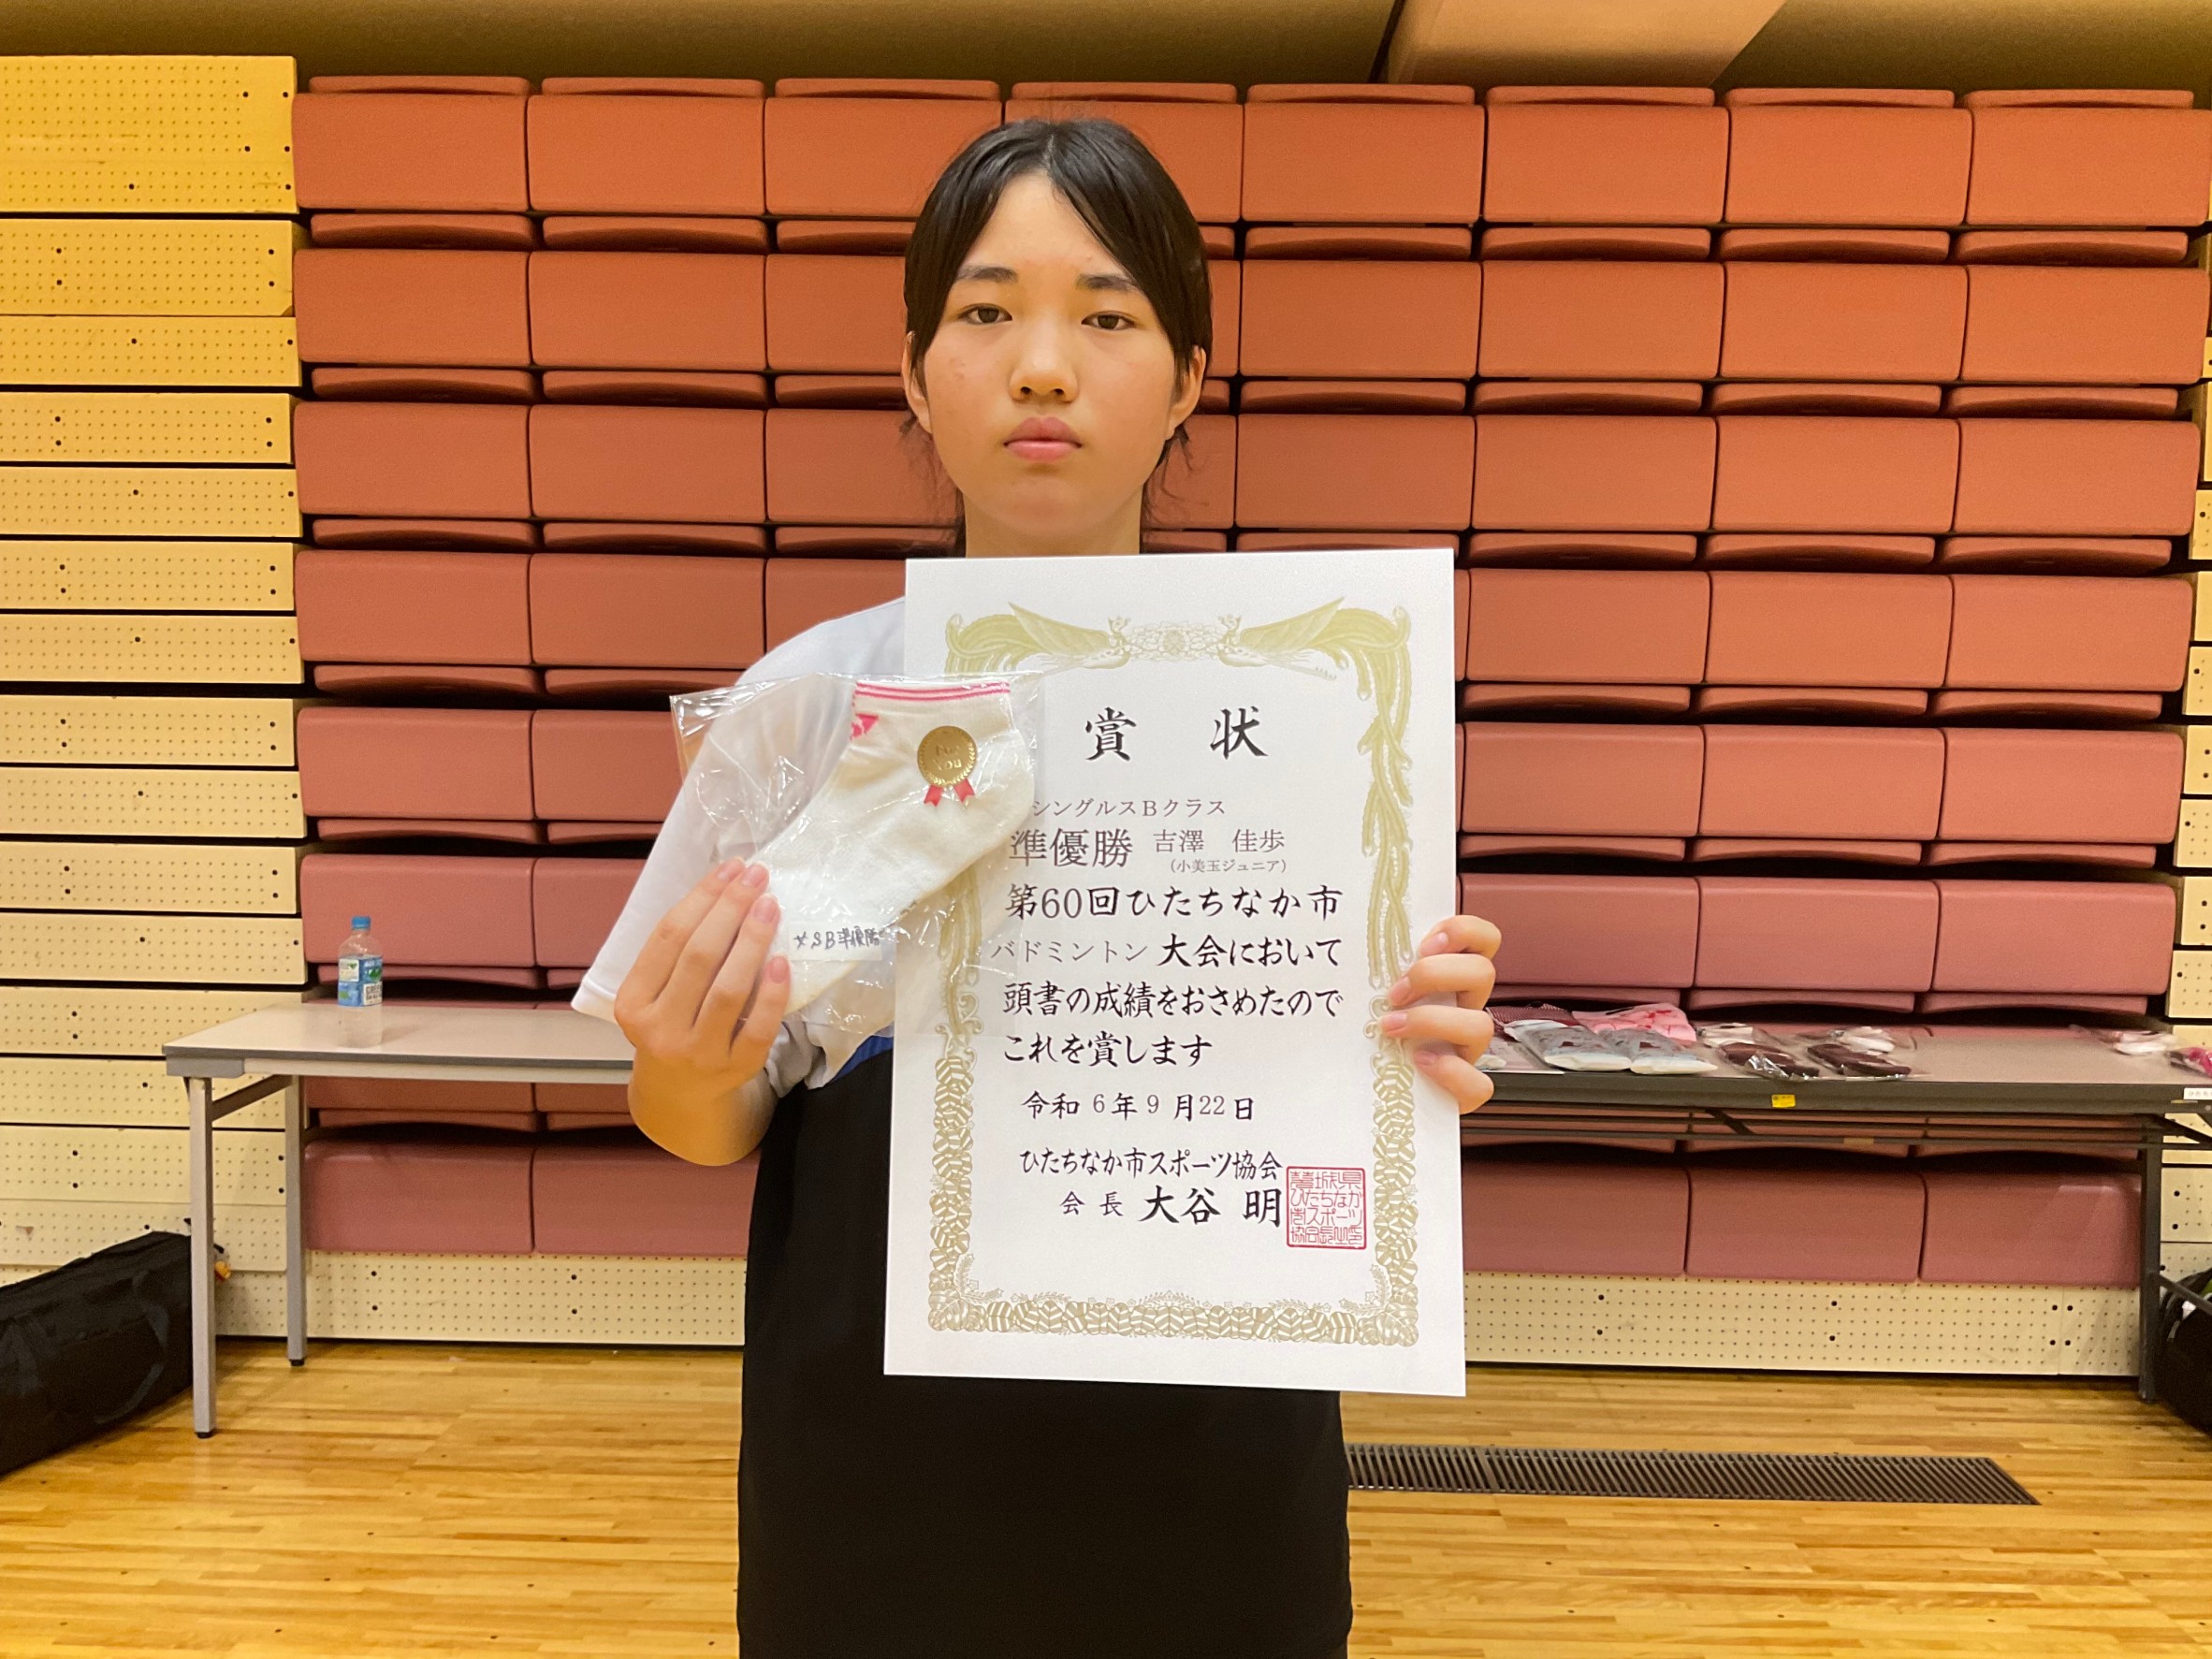 賞 状
シングルスBクラス
準優勝 吉澤 佳歩
(小美玉ジュニア)
第60回ひたちなか市
バドミントン大会において
頭書の成績をおさめたので
これを賞します
令和6年9月22日
ひたちなか市スポーツ協会
会長 大谷 明
茨城県
ひたちなか
市スポーツ
協会長之印
For
You
女SB準優勝